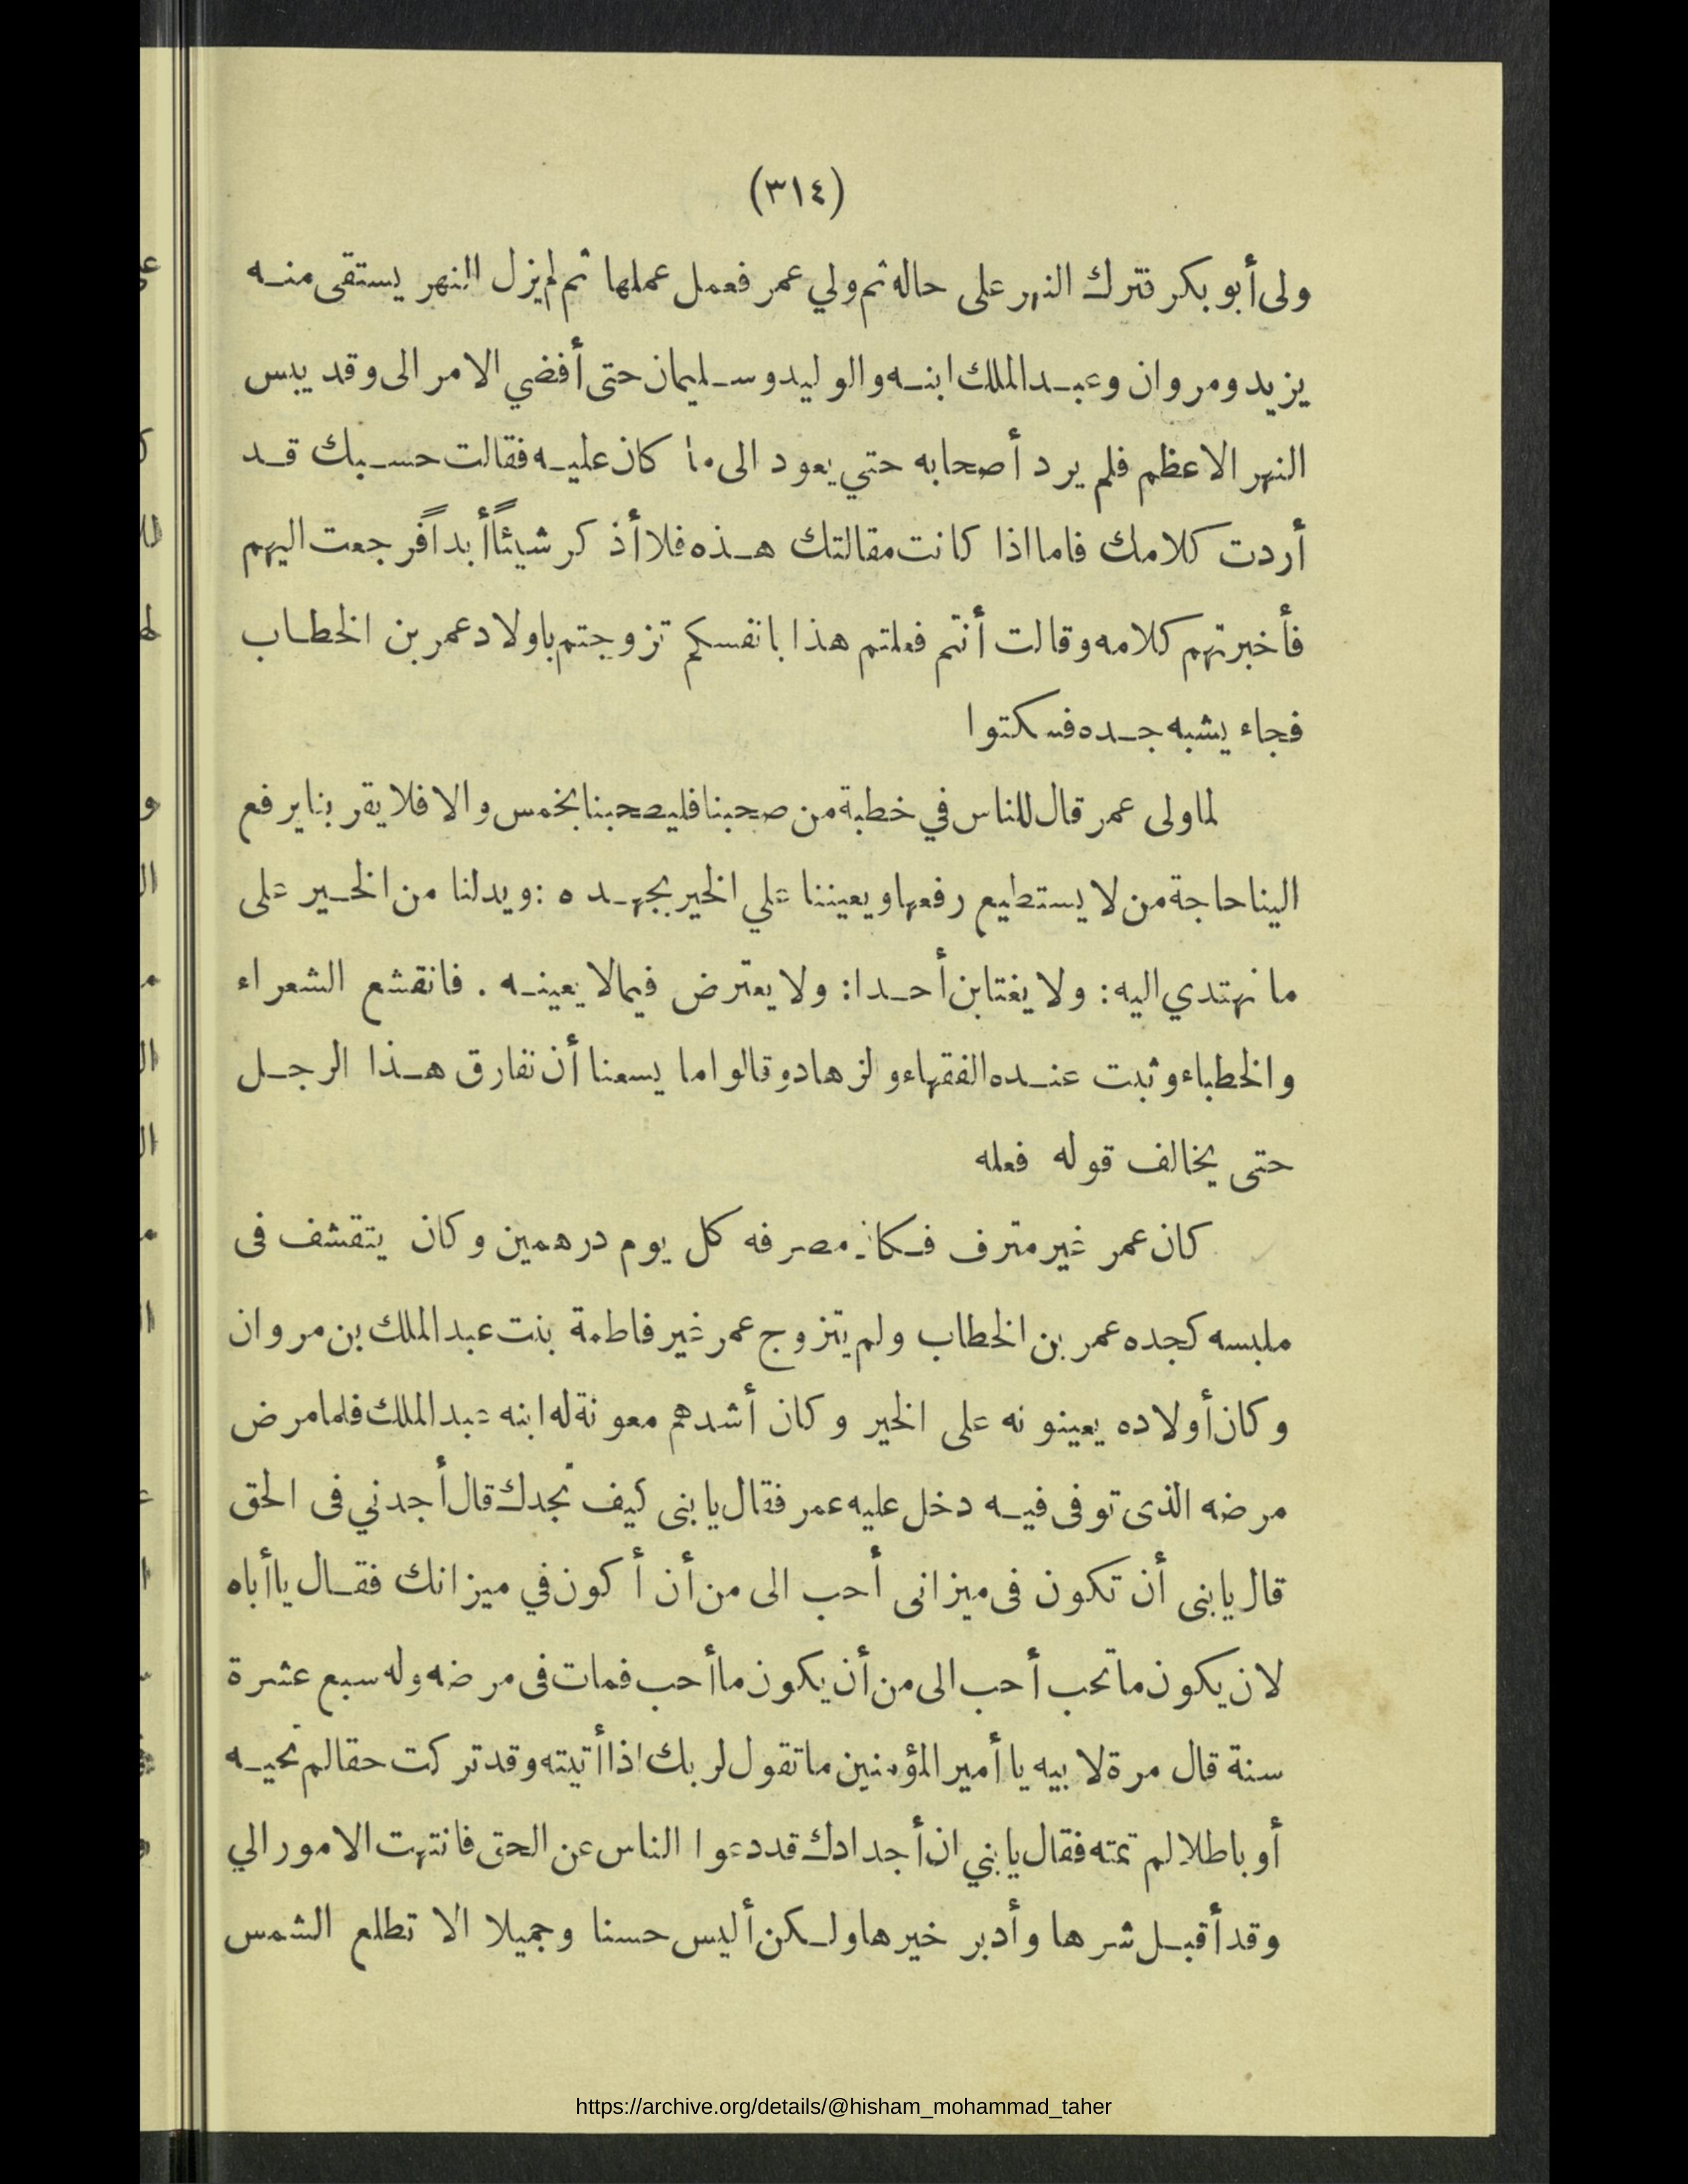 (٣١٤)
ولى أبو بكر فترك النهر على حاله ثم ولي عمر فعمل عملها ثم لم يزل النهر يستقى منه
يزيد ومروان وعبد الملك ابنه والوليد وسليمان حتى أفضي الامر الى وقد يبس
النهر الاعظم فلم يرد أصحابه حتي يعود الى ما كان عليه فقالت حسبك قد
أردت كلامك فاما اذا كانت مقالتك هذه فلا أذكر شيئاً أبداً فرجعت اليهم
فأخبرتهم كلامه وقالت أنتم فعلتم هذا بانفسكم تزوجتم باولاد عمر بن الخطاب
فجاء يشبه جده فسكتوا
لما ولى عمر قال للناس في خطبة من صحبنا فليصحبنا بخمس والا فلا يقربنا يرفع
الينا حاجة من لا يستطيع رفعها ويعيننا علي الخير بجهده : ويدلنا من الخير على
ما نهتدي اليه : ولا يغتابن أحدا : ولا يعترض فيما لا يعينه . فانقشع الشعراء
والخطباء وثبت عنده الفقهاء ولزهاد وقالوا ما يسعنا أن نفارق هذا الرجل
حتى يخالف قوله فعله
كان عمر غير مترف فكان مصرفه كل يوم درهمين وكان يتقشف فى
ملبسه كجده عمر بن الخطاب ولم يتزوج عمر غير فاطمة بنت عبد الملك بن مروان
وكان أولاده يعينونه على الخير وكان أشدهم معونة له ابنه عبد الملك فلما مرض
مرضه الذى توفى فيه دخل عليه عمر فقال يا بنى كيف تجدك قال أجدني فى الحق
قال يا بنى أن تكون فى ميزانى أحب الى من أن أكون في ميزانك فقال يا أباه
لان يكون ما تحب أحب الى من أن يكون ما أحب فمات فى مرضه وله سبع عشرة
سنة قال مرة لابيه يا أمير المؤمنين ما تقول لربك اذا أتيته وقد تركت حقا لم تحيه
أو باطلا لم تمته فقال يا بني ان أجدادك قد دعوا الناس عن الحق فانتهت الامور الي
وقد أقبل شرها وأدبر خيرها ولكن أليس حسنا وجميلا الا تطلع الشمس
https://archive.org/details/@hisham_mohammad_taher